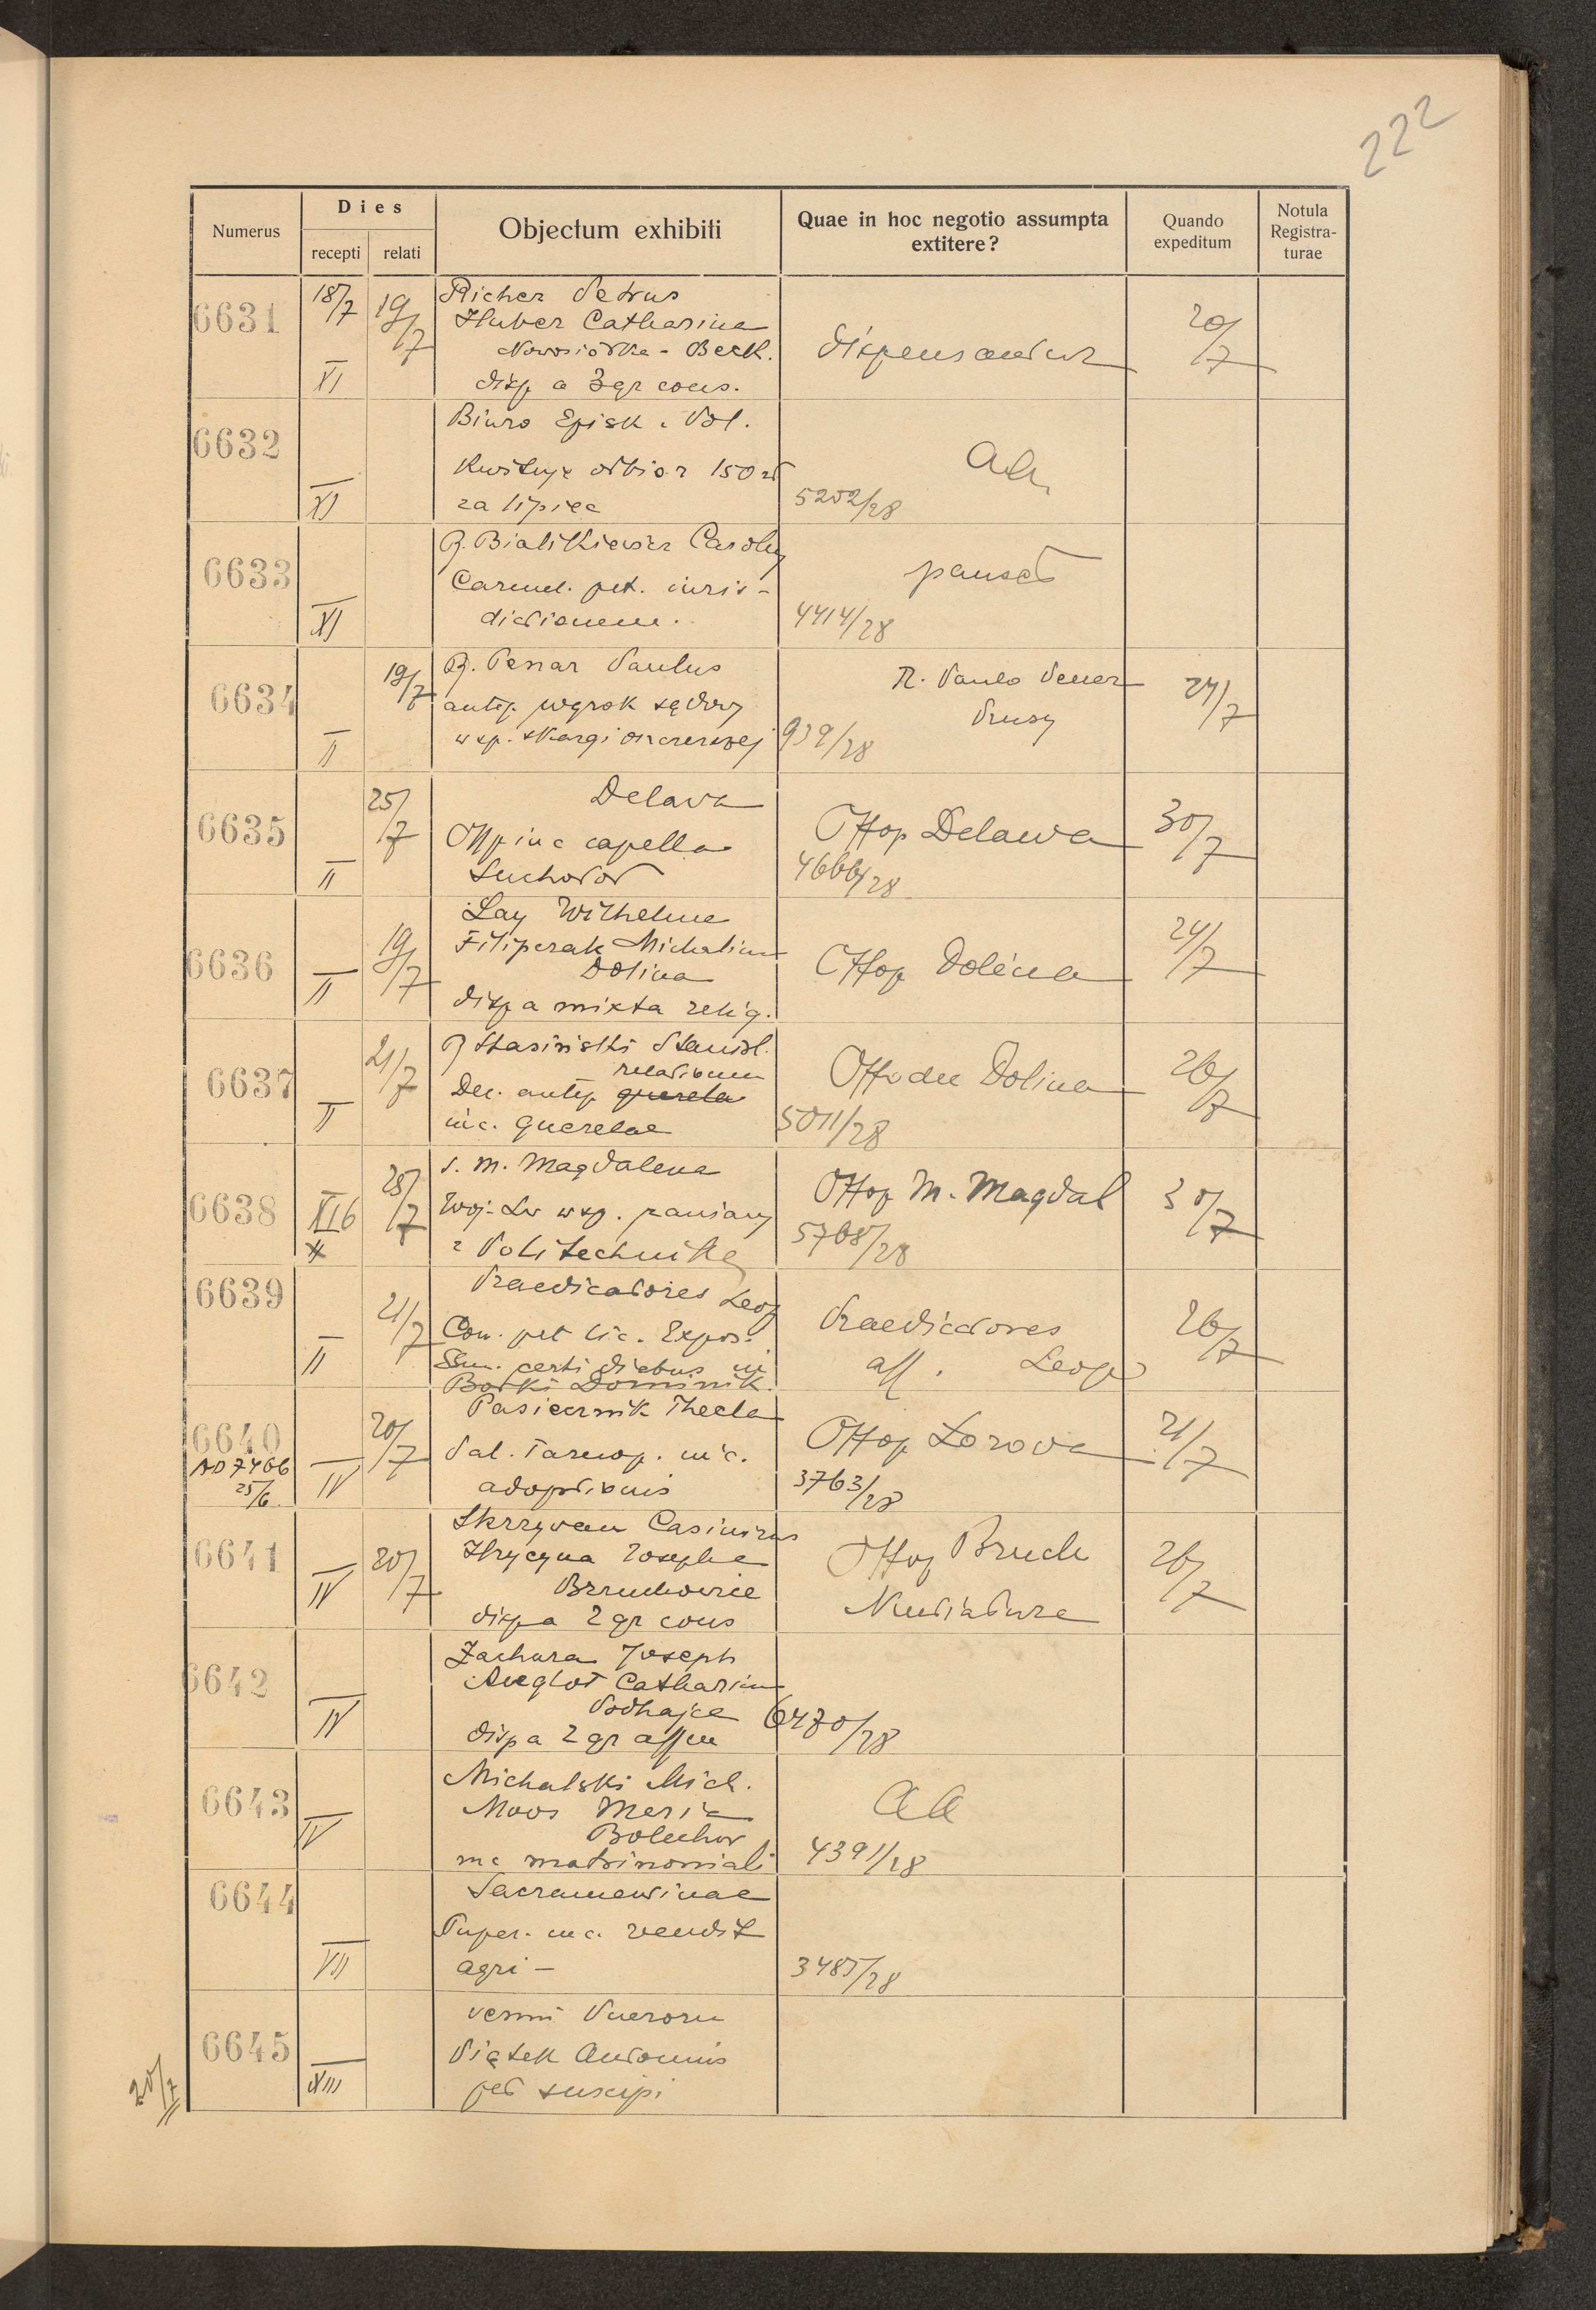 222
Numerus
Dies
recepti
relati
Objectum exhibiti
Quae in hoc negotio assumpta
extitere?
Quando
expeditum
Notula
Registra-
turae
6631
18/7
XI
19/7
Richer Petrus
Huber Catharina
Nowosiółka - Beck.
disp a 3 gr cons.
dispensantur
20/7
6632
XI
Biuro Episk. Pol.
Kwituje odbiór 150 zł
za lipiec
aa
5202/28
6633
XI
P. Bialikiewicz Carolus
Carmel. pet. iuris-
dictionem.
4414/28
6634
II
19/7
P. Penar Paulus
antep wyrok sądowy
w sp. skargi oszczerczej
R. Paulo Penar
Prusy
939/28
24/7
6635
II
25/7
Delava
Offp inc capella
Suchodół
Offop Delawa
4666/28
30/7
6636
II
19/7
Lay Wilhelm
Filipczak Michalina
Dolina
disp a mixta relig.
Offop Dolina
24/7
6637
II
21/7
P Stasiński Stanisl.
relationem
Dec. antep querela
inc. querelae
Off dec Dolina
5011/28
26/7
6638
XI6
X
28/7
S. M. Magdalena
Woj. Lw w sp. zamiany
z Politechniką
Offop M. Magdal
5768/28
30/7
6639
II
21/7
Praedicatores Leop
Con. pet lic. Expos.
SSmi. certi diebus in
Bołki Dominik.
Praedicatores
aff. Leop
26/7
6640
AD 7466
25/6
IV
20/7
Pasiecznik Thecla
Pal. Tarnop. inc.
adoptionis
Offop Lozova
3763/28
21/7
6641
IV
20/7
Skrzywan Casimirus
Hrycyna Josepha
Brzuchowice
disp a 2 gr cons
Offop Bruch
Nuntiatura
26/7
6642
IV
Zachura Joseph
Anglot Catharina
Podhajce
disp a 2 gr affin
6470/28
6643
IV
Michalski Mich.
Moos Maria
Bolechov
inc matrimoniali
aa
4391/28
6644
VII
Sacramentinae
Super. inc. vendit
agri -
3485/28
6645
XIII
Semin Puerorum
Piątek Antonius
pet suscipi
20/7